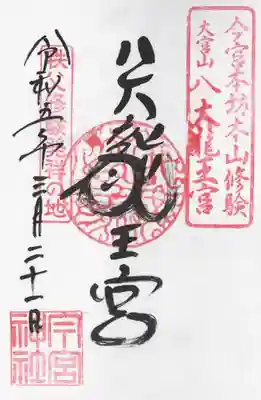 今宮本坊本山修験
大宮山
八大龍王宮
八大龍王宮
秩父修験発祥の地
令和五年三月二十一日
今宮
神社